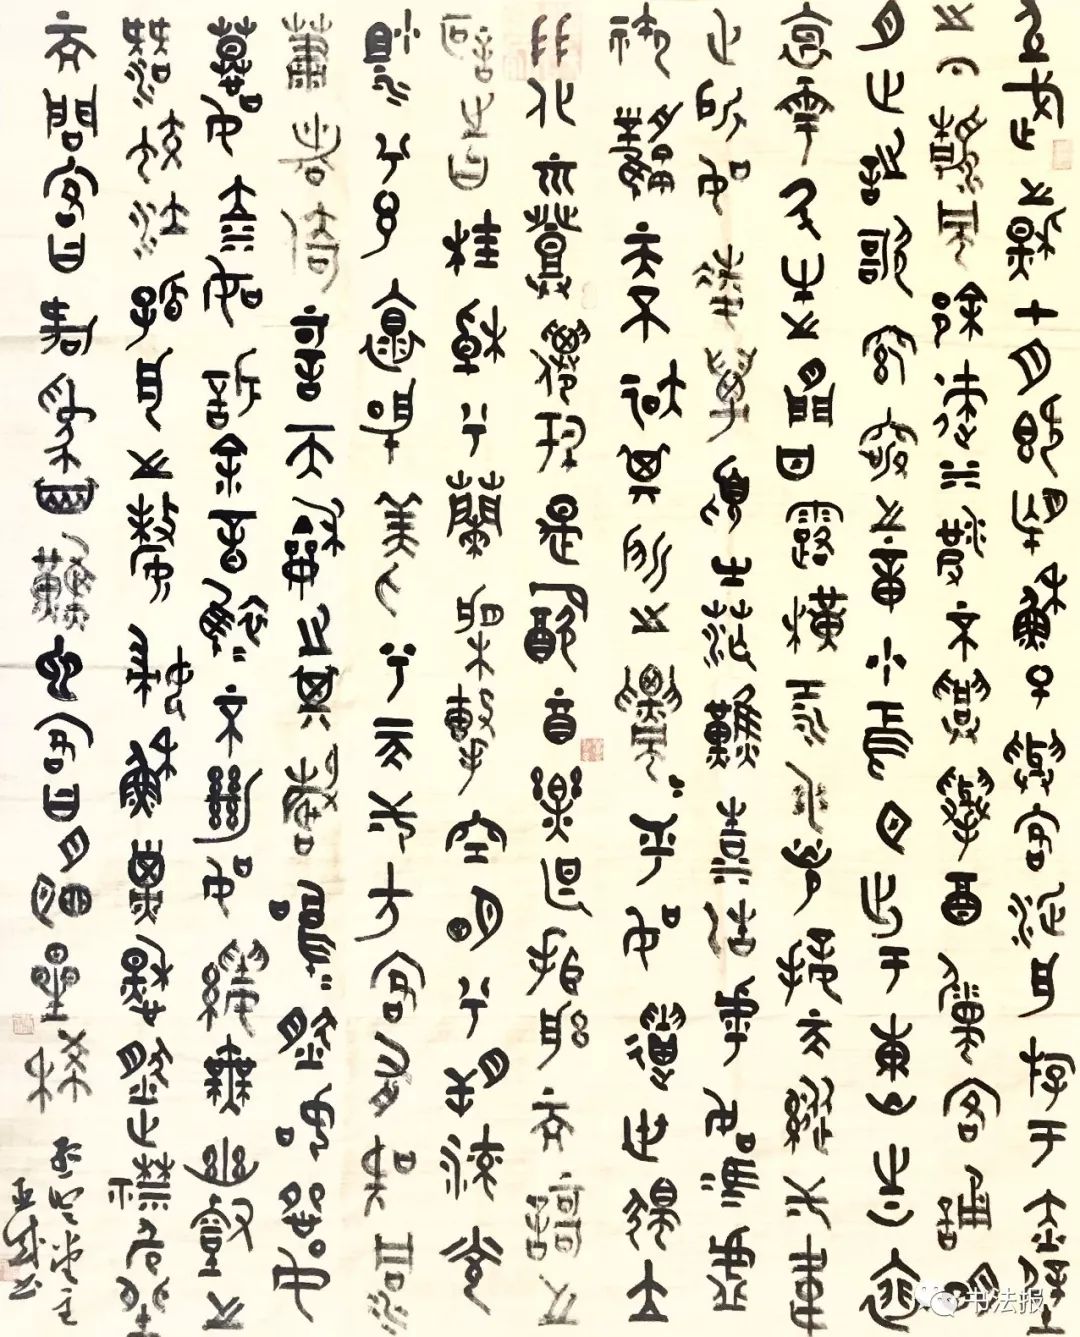 壬戌之秋七月既望蘇子與客泛舟游于赤壁
之下清風徐來水波不興舉酒屬客誦明
月之詩歌窈窕之章少焉月出于東山之上徘
徊于斗牛之間白露橫江水光接天縱一葦
之所如凌萬頃之茫然浩浩乎如馮虛
御風而不知其所止飄飄乎如遺世獨立
羽化而登仙於是飲酒樂甚扣舷而歌之
歌之曰桂棹兮蘭槳擊空明兮溯流光
渺渺兮予懷望美人兮天一方客有吹洞
簫者倚歌而和之其聲嗚嗚然如怨如
慕如泣如訴餘音裊裊不絕如縷舞幽壑之
潛蛟泣孤舟之嫠婦蘇子愀然正襟危坐
而問客曰何為其然也客曰月明星稀
书法报